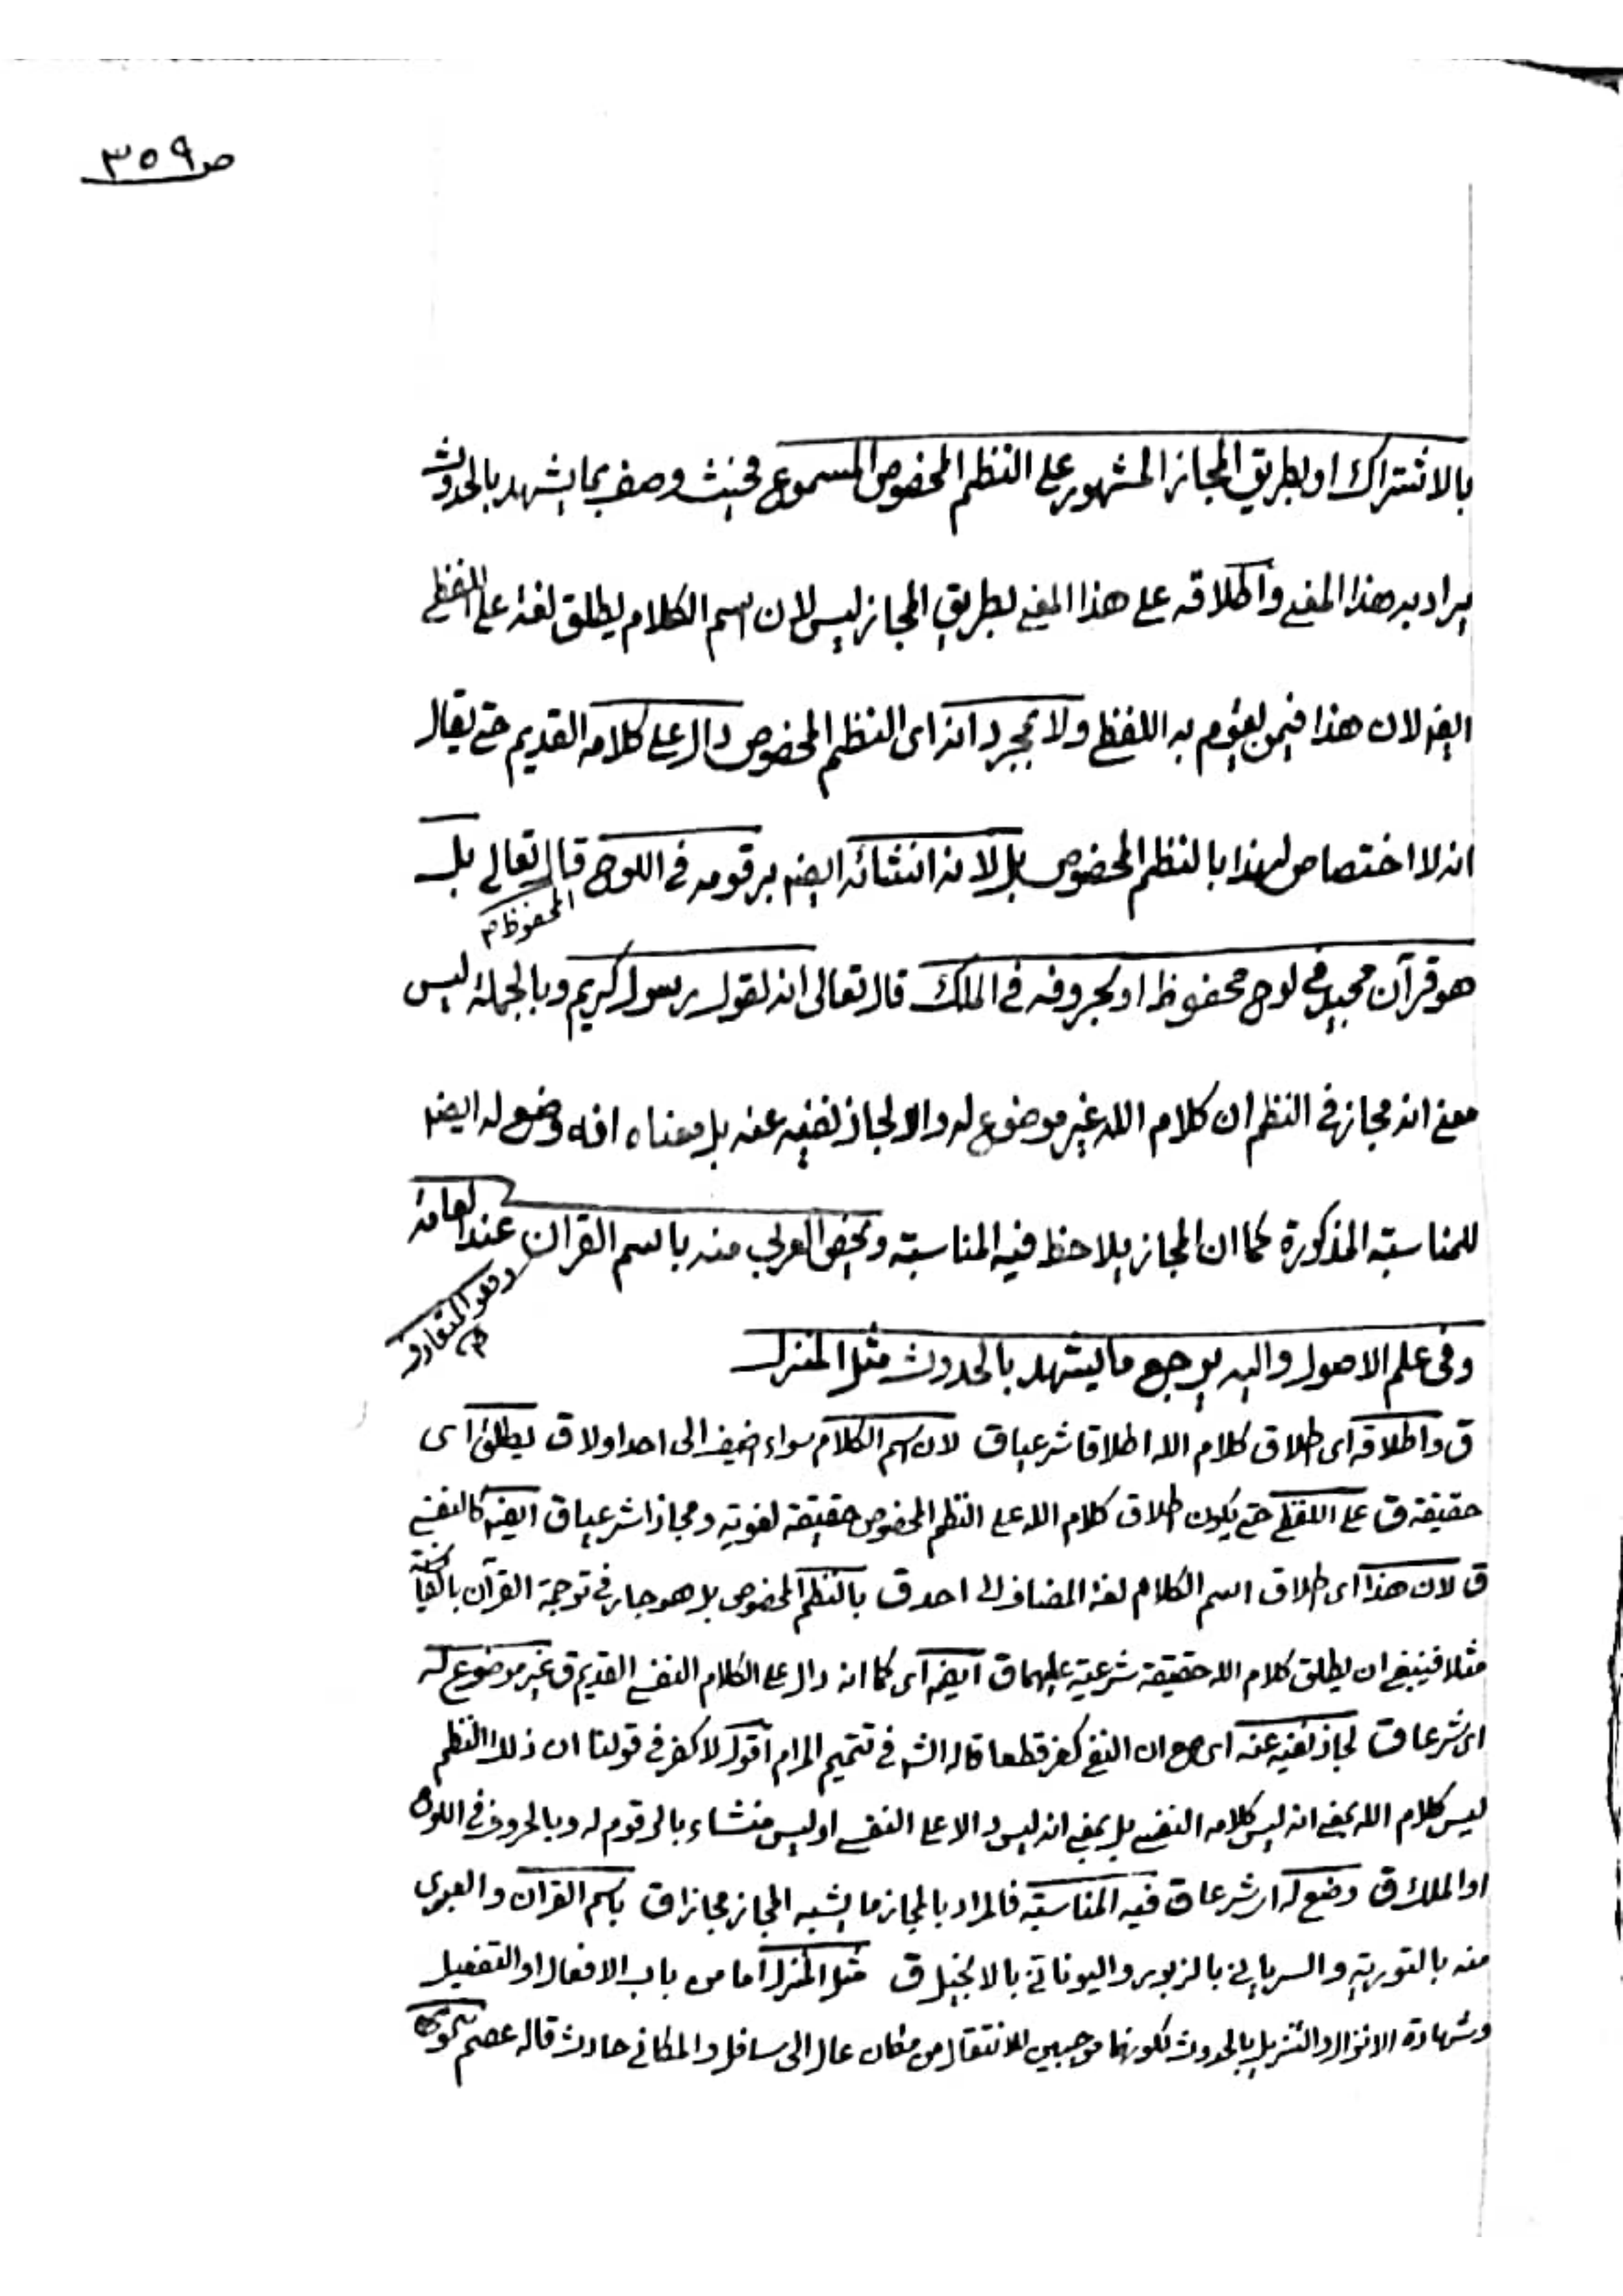 ص ٣٥٩
بالاشتراك او بطريق المجاز المشهور على النظم المخصوص المسموع فحيث وصف بما يشهد بالحدوث
يراد به هذا المعنى واطلاقه على هذا المعنى بطريق المجاز ليس لان اسم الكلام يطلق لغة على اللفظى
ايضا لان هذا فيمن يقوم به اللفظ ولا بمجرد انه اى النظم المخصوص دال على كلامه القديم حتى يقال
انه لا اختصاص لهذا بالنظم المخصوص بل لانه انشائه ايضا برقومه فى اللوح قال تعالى بل
المحفوظ م
هو قرآن مجيد فى لوح محفوظ او بحروفه فى الملك قال تعالى انه لقول رسول كريم وبالجملة ليس
معنى انه مجاز فى النظم ان كلام الله غير موضوع له والا لجاز نفيه عنه بل معناه انه وضع له ايضا
للمناسبة المذكورة كما ان المجاز يلاحظ فيه المناسبة ويخص العربي منه باسم القران عند العامة
وهو المتعارف م
وفى علم الاصول واليه يرجع ما يشهد بالحدوث مثل المنزل
ق واطلاقه اى اطلاق كلام الله اطلاقا شرعيا ق لان اسم الكلام سواء اضيف الى احد اولا ق يطلق اى
حقيقة ق على اللفظى حتى يكون اطلاق كلام الله على النظم المخصوص حقيقة لغوية ومجازا شرعيا ق ايضا كالنفسى
ق لان هذا اى اطلاق اسم الكلام لغة المضاف الى احد ق بالنظم المخصوص بل هو جار فى ترجمة القرآن
مثلا فينبغى ان يطلق كلام الله حقيقة شرعية عليهما ق ايضا اى كما انه دال على الكلام النفسى القديم ق غير موضوع له
اى شرعا ق لجاز نفيه عنه اى مع ان النفى كفر قطعا قاله الشـ فى تتميم المرام اقول لا كفر فى قولنا ان ذلك النظم
ليس كلام الله بمعنى انه ليس كلامه النفسى بل بمعنى انه ليس دالا على النفسى او ليس منشاء بالرقوم له وبالحروف فى اللوح
او الملك ق وضع له اى شرعا ق فيه المناسبة فالمراد بالمجاز ما يشبه المجاز مجازا ق باسم القران والعبرى
منه بالتورية والسرياني بالزبور واليونانى بالانجيل ق مثل المنزل اما من باب الافعال او التفعيل
وشهادة الانزال والتنزيل بالحدوث لكونهما موجبين للانتقال من مكان عال الى سافل والمكانى حادث قاله عصم